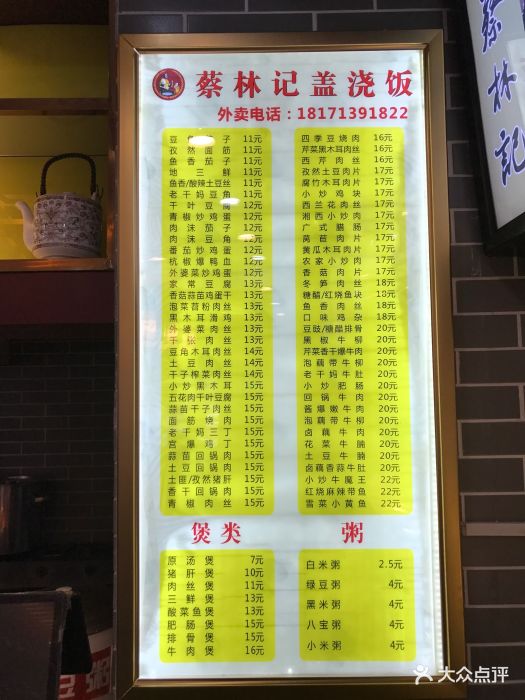 蔡林记盖浇饭
外卖电话：18171391822
豆角茄子 11元
孜然面筋 11元
鱼香茄子 11元
地三鲜 11元
鱼香/酸辣土豆丝 11元
老干妈豆角 11元
千叶豆腐 12元
青椒炒鸡蛋 12元
肉沫茄子 12元
肉沫豆角 12元
番茄炒鸡蛋 12元
杭椒爆鸭血 12元
外婆菜炒鸡蛋 12元
家常豆腐 12元
香菇蒜苗鸡蛋干 13元
泡菜苕粉肉丝 13元
黑木耳滑鸡 13元
外婆菜肉丝 13元
千张肉丝 13元
豆角木耳肉丝 14元
土豆肉丝 14元
干子榨菜肉丝 14元
小炒黑木耳 15元
五花肉千叶豆腐 15元
蒜苗干子肉丝 15元
面筋烧肉 15元
老干妈三丁 15元
宫爆鸡丁 15元
蒜苗回锅肉 15元
土豆回锅肉 15元
土匪/孜然猪肝 15元
香干回锅肉 15元
青椒肉丝 15元
四季豆烧肉 16元
芹菜黑木耳肉丝 16元
西芹肉丝 16元
孜然土豆肉片 17元
腐竹木耳肉片 17元
小炒鸡块 17元
西兰花肉丝 17元
湘西小炒肉 17元
广式腊肠 17元
莴苣肉片 17元
黄瓜木耳肉片 17元
农家小炒肉 17元
香菇肉片 17元
冬笋肉丝 18元
糖醋/红烧鱼块 18元
鱼香肉丝 18元
口味鸡杂 18元
豆豉/糖醋排骨 20元
黑椒牛柳 20元
芹菜香干爆牛肉 20元
泡藕带牛柳 20元
老干妈牛肚 20元
小炒肥肠 20元
回锅牛肉 20元
酱爆嫩牛肉 20元
泡藕带牛柳 20元
卤藕牛肉 20元
花菜牛腩 20元
土豆牛腩 20元
卤藕香蒜牛肚 20元
小炒牛魔王 22元
红烧麻辣带鱼 22元
雪菜小黄鱼 22元
煲类
原汤煲 7元
猪肝煲 10元
肉丝煲 11元
三鲜煲 13元
酸菜鱼煲 13元
肥肠煲 15元
排骨煲 15元
牛肉煲 16元
粥
白米粥 2.5元
绿豆粥 4元
黑米粥 4元
八宝粥 4元
小米粥 4元
蔡林記
大众点评